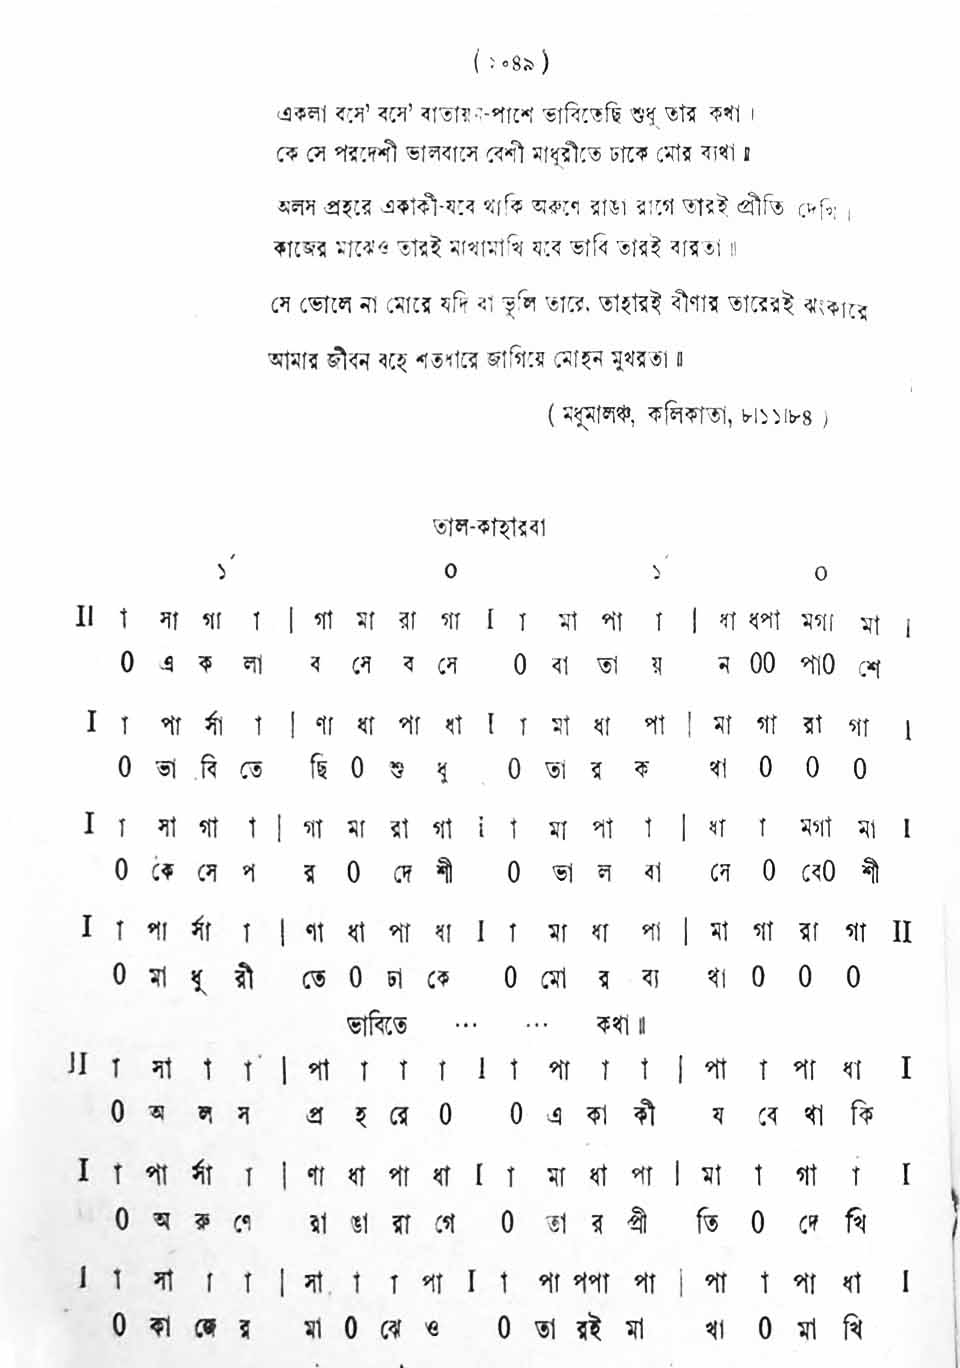 ( ১০৪৯ )
একলা বসে' বসে' বাতায়ন-পাশে ভাবিতেছি শুধু তার কথা ।
কে সে পরদেশী ভালবাসে বেশী মাধুরীতে ঢাকে মোর ব্যথা ॥
অলস প্রহরে একাকী-যবে থাকি অরুণে রাঙা রাগে তারই প্রীতি দেখি ।
কাজের মাঝেও তারই মাথামাখি যবে ভাবি তারই বারতা ॥
সে ভোলে না মোরে যদি বা ভুলি তারে. তাহারই বীণার তারেরই ঝংকারে
আমার জীবন বহে শতধারে জাগিয়ে মোহন মুখরতা ॥
( মধুমালঞ্চ, কলিকাতা, ৮।১১।৮৪ )
তাল-কাহারবা
১´ 0 ১´ 0
II া সা গা া | গা মা রা গা I া মা পা া | ধা ধপা মগা মা I
0 এ ক লা ব সে ব সে 0 বা তা য় ন 00 পা0 শে
I া পা র্সা া | ণা ধা পা ধা I া মা ধা পা | মা গা রা গা I
0 ভা বি তে ছি 0 শু ধু 0 তা র ক থা 0 0 0
I া সা গা া | গা মা রা গা I া মা পা া | ধা া মগা মা I
0 কে সে প র 0 দে শী 0 ভা ল বা সে 0 বে0 শী
I া পা র্সা া | ণা ধা পা ধা I া মা ধা পা | মা গা রা গা II
0 মা ধু রী তে 0 ঢা কে 0 মো র ব্য থা 0 0 0
ভাবিতে ... ... কথা ॥
II া সা া া | পা া া া I া পা া া | পা া পা ধা I
0 অ ল স প্র হ রে 0 0 এ কা কী য বে থা কি
I া পা র্সা া | ণা ধা পা ধা I া মা ধা পা | মা া গা া I
0 অ রু ণে রা ঙা রা গে 0 তা র প্রী তি 0 দে খি
I া সা া া | সা া া পা I া পা পপা পা | পা া পা ধা I
0 কা জে র মা 0 ঝে ও 0 তা রই মা খা 0 মা খি